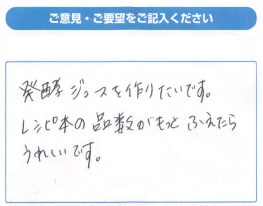 ご意見・ご要望をご記入ください
発酵ジュースを作りたいです。
レシピ本の品数がもっとふえたら
うれしいです。